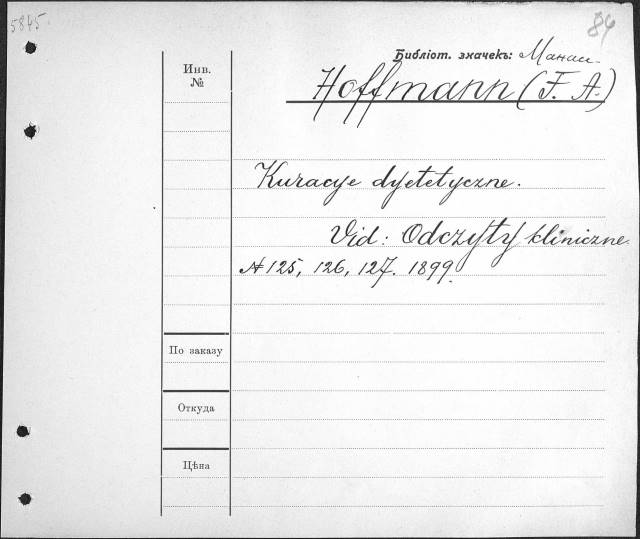 5845.
84
Библіот. значекъ: Манас.
Инв. №
Hoffmann (F. A.)
Kuracye dyetetyczne.
Vid: Odczyty kliniczne.
№ 125, 126, 127. 1899.
По заказу
Откуда
Цѣна